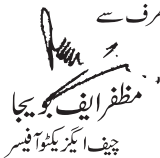 رف سے
مظفر ایف بویجا
چیف ایگزیکٹو آفیسر